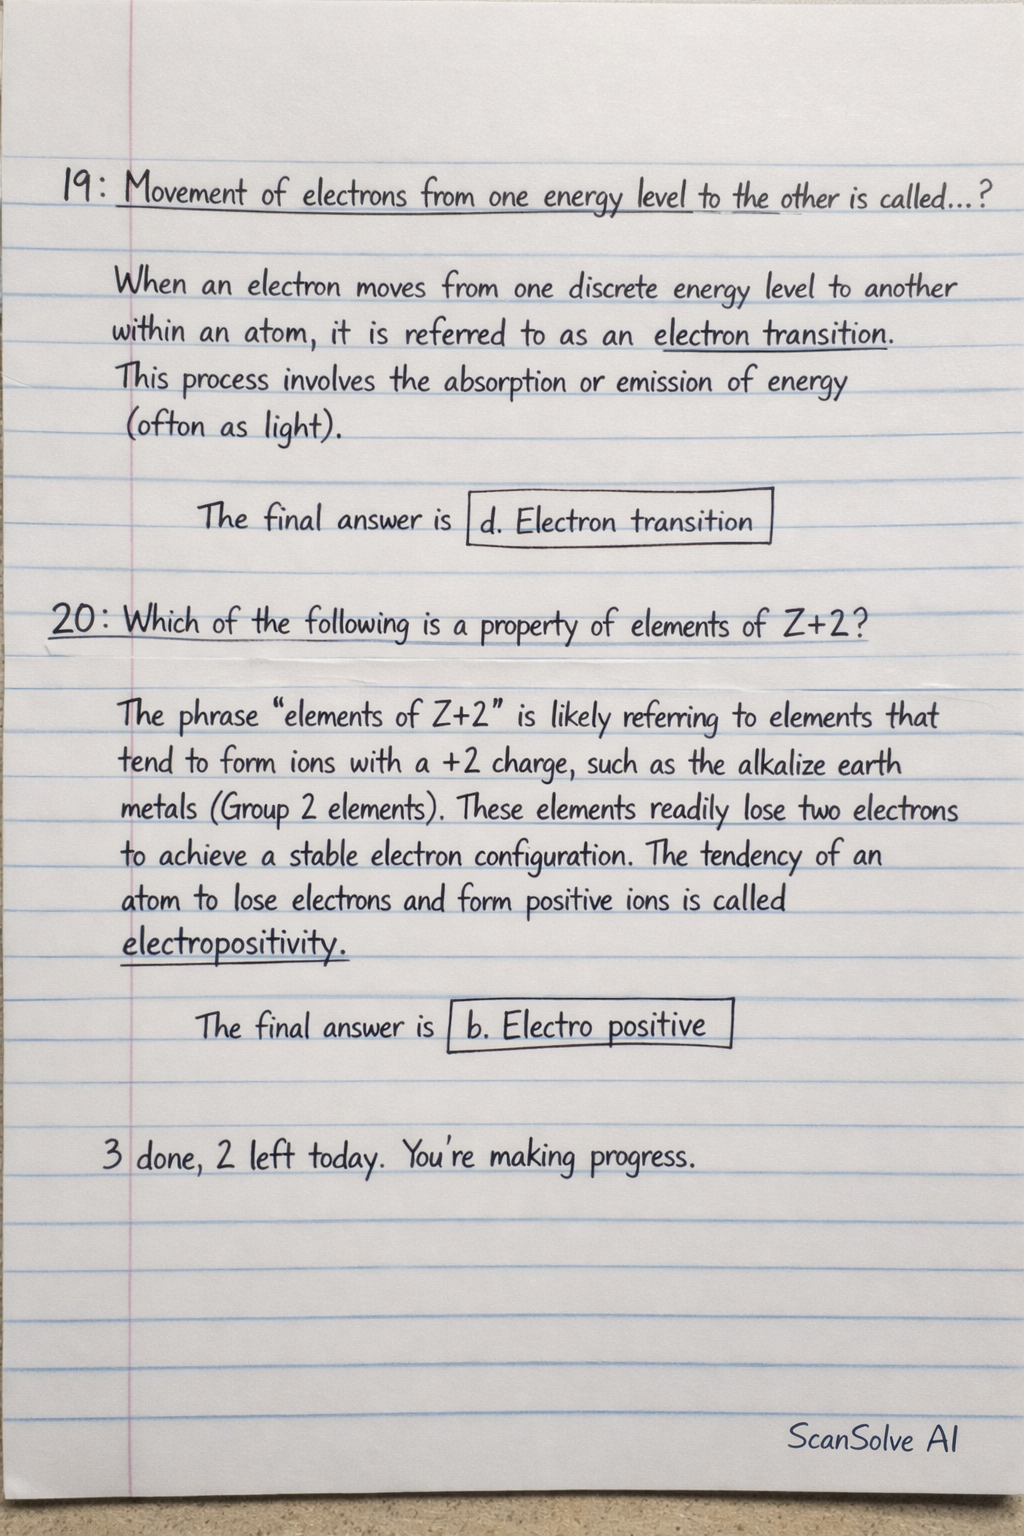 19: Movement of electrons from one energy level to the other is called...?
When an electron moves from one discrete energy level to another
within an atom, it is referred to as an electron transition.
This process involves the absorption or emission of energy
(ofton as light).
The final answer is d. Electron transition
20: Which of the following is a property of elements of Z+2?
The phrase "elements of Z+2" is likely referring to elements that
tend to form ions with a +2 charge, such as the alkalize earth
metals (Group 2 elements). These elements readily lose two electrons
to achieve a stable electron configuration. The tendency of an
atom to lose electrons and form positive ions is called
electropositivity.
The final answer is b. Electro positive
3 done, 2 left today. You're making progress.
ScanSolve AI